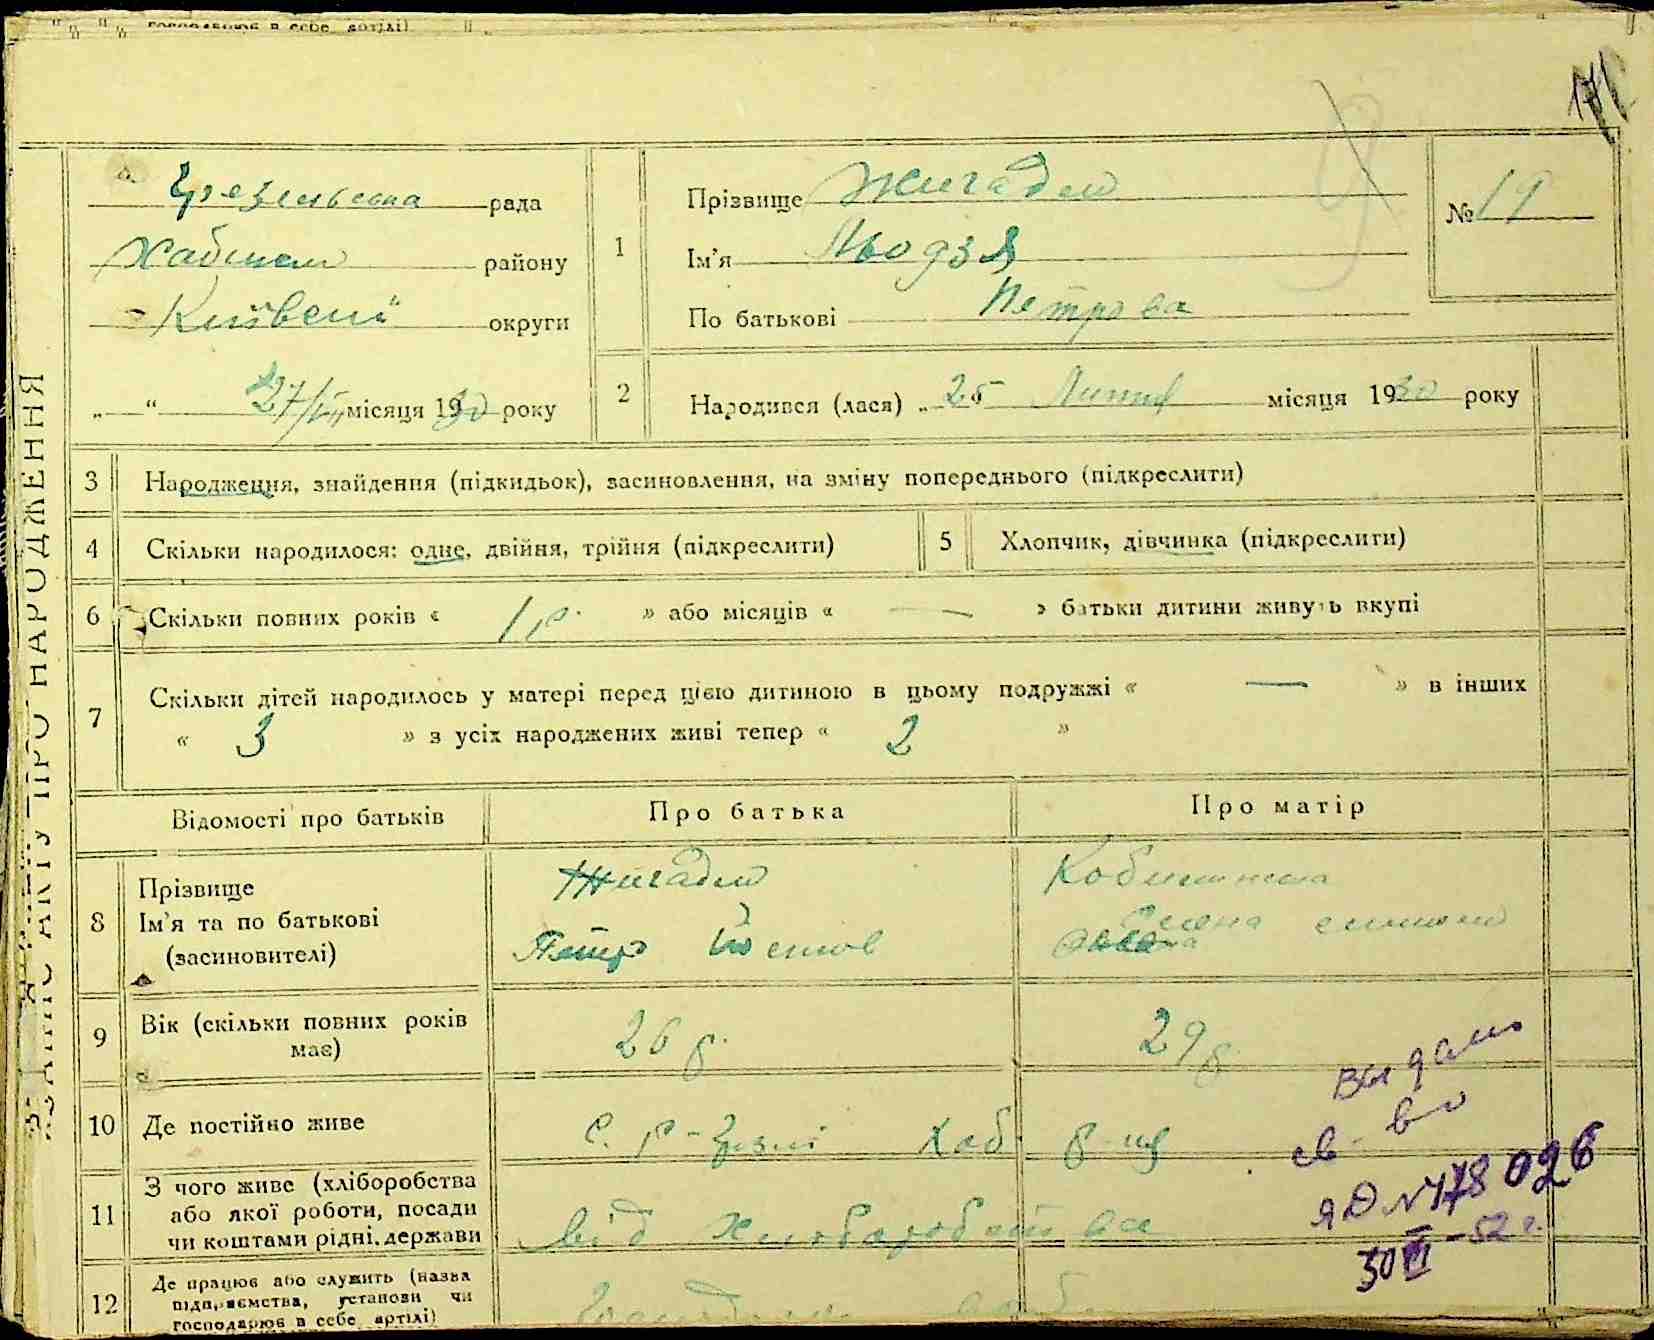 господарює в себе артілі)
171
Грезлянська рада
Хабенськ району
Київськ округи
„ “ 27/VII місяця 1930 року
1
Прізвище Жигадло
Ім'я Льодзя
По батькові Петрова
№ 19
2
Народився (лася) „ 25 Липня місяця 1930 року
ЗАПИС АКТУ ПРО НАРОДЖЕННЯ
3 Народження, знайдення (підкидьок), засиновлення, на зміну попереднього (підкреслити)
4 Скільки народилося: одне, двійня, трійня (підкреслити)
5 Хлопчик, дівчинка (підкреслити)
6 Скільки повних років « 1 р. » або місяців « — » батьки дитини живуть вкупі
7 Скільки дітей народилось у матері перед цією дитиною в цьому подружжі « — » в інших
« 3 » з усіх народжених живі тепер « 2 »
Відомості про батьків Про батька Про матір
8 Прізвище Жигадло
Ім'я та по батькові
(засиновителі) Петро Єлена
9 Вік (скільки повних років має) 26 р. 29 р.
10 Де постійно живе Хаб р-ну
11 З чого живе (хліборобства або якої роботи, посади чи коштами рідні, держави Від хліборобства
12 Де працює або служить (назва підприємства, установи чи господарює в себе артілі)
выдано
св-во
ЯД № 478026
30 VII - 52 г.